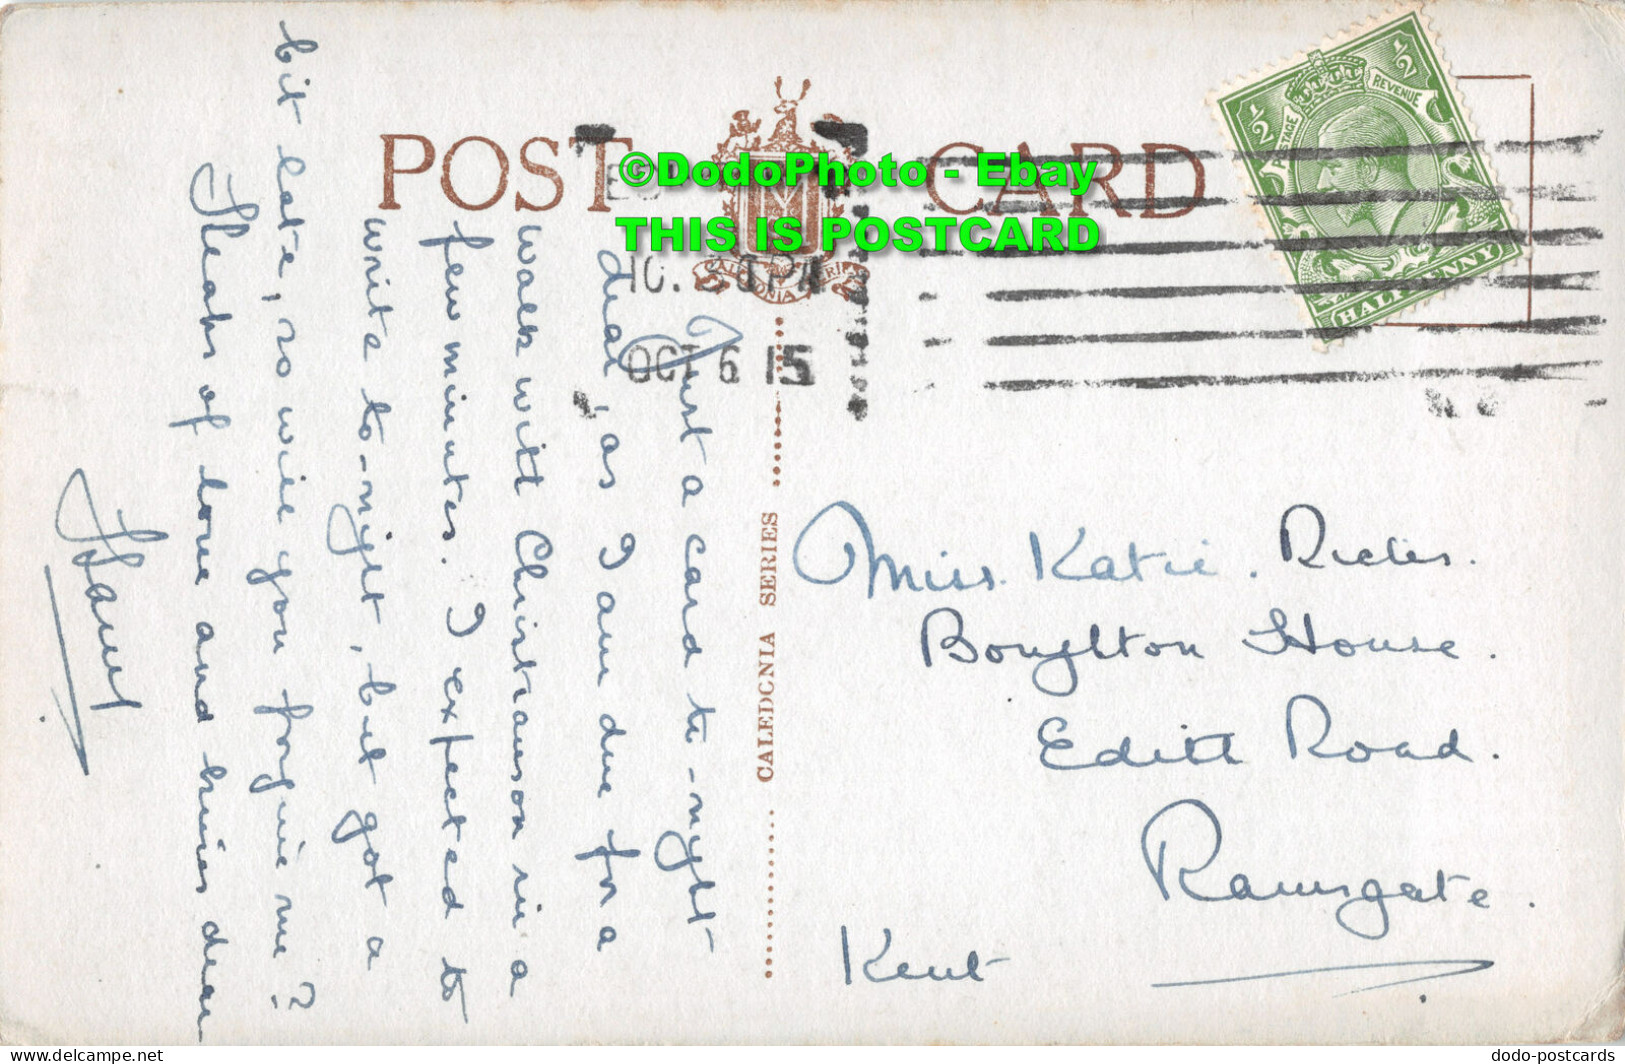 POST CARD
CALEDONIA SERIES
½ ½
POSTAGE REVENUE
HALFPENNY
10.30 PM
OCT 6 15
©DodoPhoto - Ebay
THIS IS POSTCARD
CALEDONIA SERIES
Just a card to-night
dear, as I am due for a
walk with Christianson in a
few minutes. I expected to
write to-night, but got a
bit late, so will you forgive me?
Heaps of love and kisses dear
Miss Katie
Boughton House.
Edith Road.
Ramsgate.
Kent
Picture taken from www.delcampe.net
dodo-postcards